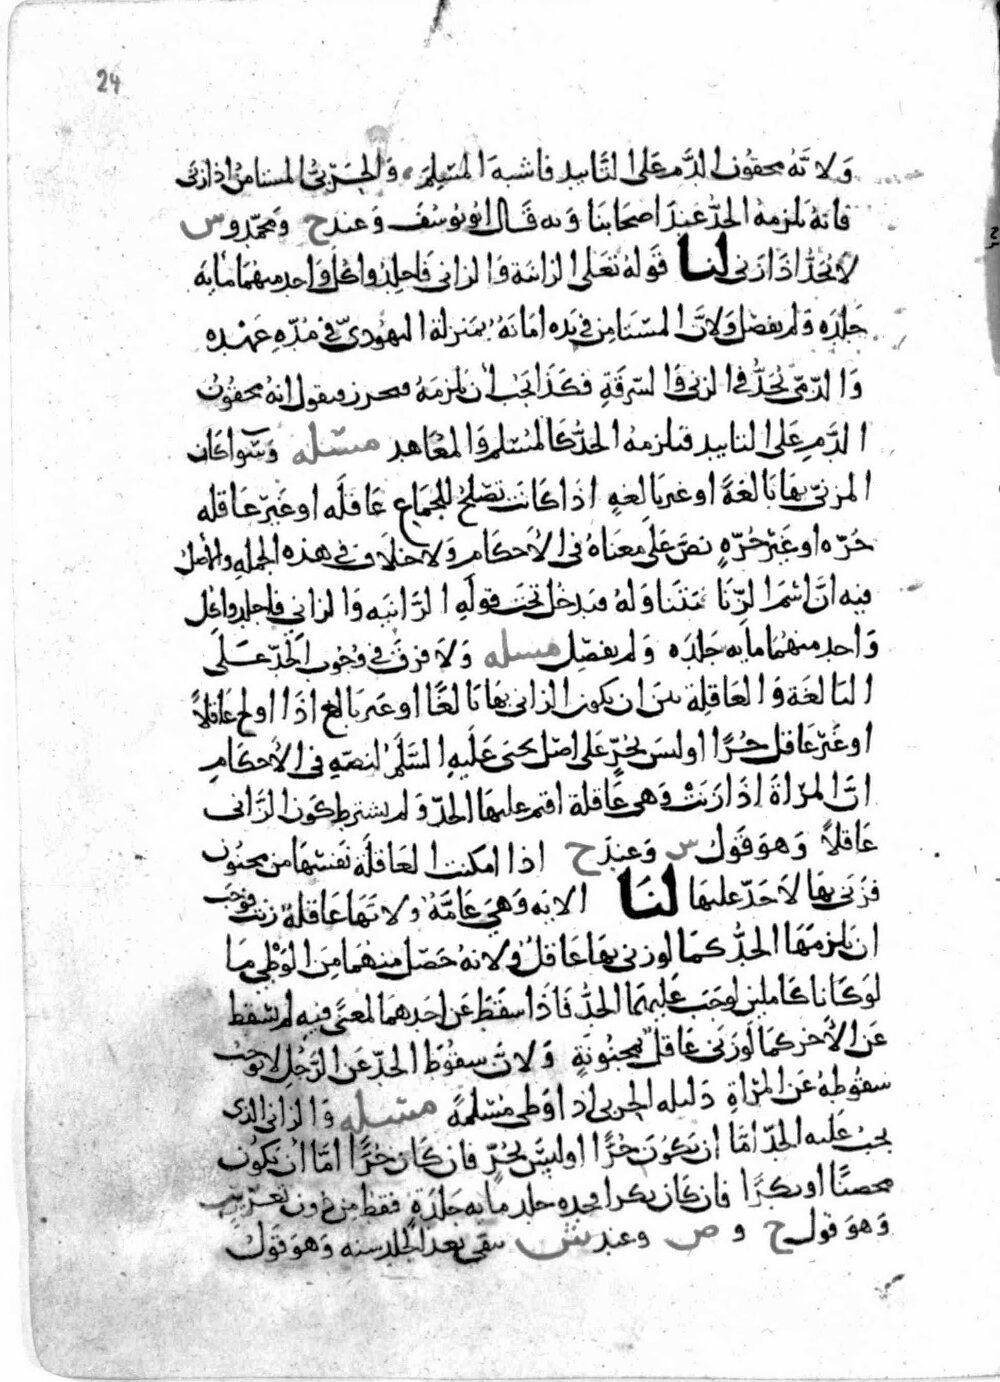 24
ولانه محقون الدم على التابيد فاشبه المسلم والحربي المستامن اذا زنى
فانه يلزمه الحد عند اصحابنا وبه قال ابو يوسف وعند ح ومحمد وس
لا يحد اذا زنى لنا قوله تعلى الزانية والزاني فاجلدوا كل واحد منهما مايه
جلده ولم يفصل ولان المستامن في يده امانه بمنزلة اليهودي في مده عهده
والذمي يحد في الزنى والسرقة فكذا يجب ان يلزمه ونحرر فنقول انه محقون
الدم على التابيد فيلزمه الحد كالمسلم والمعاهد مسله وسوا كان
المزني بها بالغة او غير بالغه اذا كانت تصلح للجماع عاقله او غير عاقله
حره او غير حره نص على معناه في الاحكام ولا خلاف في هذه الجمله والاصل
فيه ان اسم الزنا يتناوله فيدخل تحت قوله الزانيه والزاني فاجلدوا كل
واحد منهما مايه جلده ولم يفصل مسله ولا فرق في وجوب الحد على
البالغة والعاقلة بين ان يكون الزاني بها بالغا او غير بالغ اذا اولج عاقلا
او غير عاقل حرا او ليس بحر على اصل يحيى عليه السلم لنصه في الاحكام
ان المراة اذا زنت وهي عاقلة اقيم عليها الحد ولم يشترط كون الزاني
عاقلا وهو قول س وعند ح اذا امكنت العاقلة نفسها من مجنون
فزنى بها لا حد عليها لنا الايه وهي عامه ولانها عاقلة زنت فوجب
ان يلزمها الحد كما لو زنى بها عاقل ولانه حصل منهما من الوطي ما
لو كانا كاملين لوجب عليهما الحد فاذا سقط عن احدهما لمعنى فيه لم يسقط
عن الاخر كما لو زنى عاقل بمجنونة ولان سقوط الحد عن الرجل لا يوجب
سقوطه عن المراة دليله الحربي اذا وطى مسلمة مسله والزاني الذي
يجب عليه الحد اما ان يكون حرا او ليس بحر فان كان حرا اما ان يكون
محصنا او بكرا فان كان بكرا فحده جلد مايه جلدة فقط من دون تغريب
وهو قول ح و ص وعند ش ينفى بعد الجلد سنه وهو قول